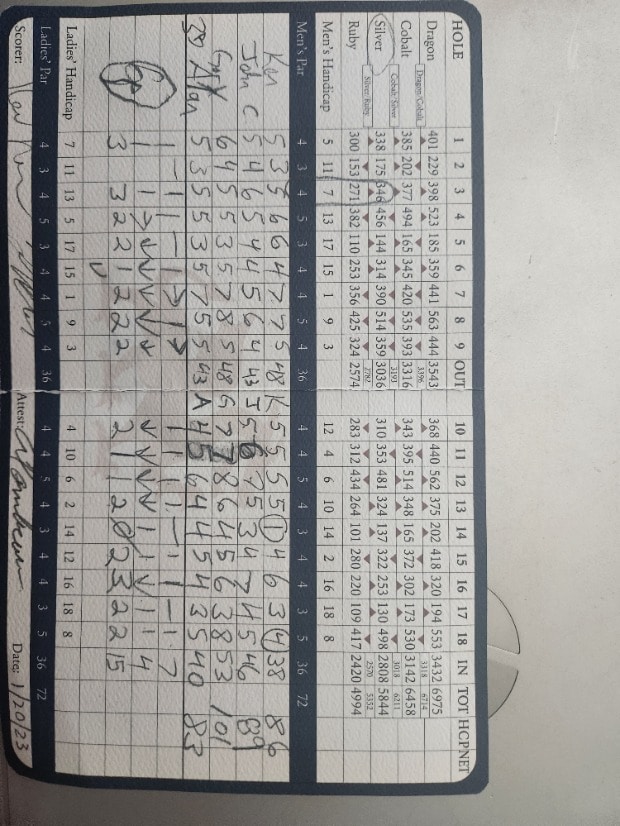 HOLE 1 2 3 4 5 6 7 8 9 OUT 10 11 12 13 14 15 16 17 18 IN TOT HCP NET
Dragon 401 229 398 523 185 359 441 563 444 3543 368 440 562 375 202 418 320 194 553 3432 6975
Dragon/Cobalt 3396 3318 6714
Cobalt 385 202 377 494 165 345 420 535 393 3316 343 395 514 348 165 372 302 173 530 3142 6458
Cobalt/Silver 3193 3018 6211
Silver 338 175 346 456 144 314 390 514 359 3036 310 353 481 324 137 322 253 130 498 2808 5844
Silver/Ruby 2782 2570 5352
Ruby 300 153 271 382 110 253 356 425 324 2574 283 312 434 264 101 280 220 109 417 2420 4994
Men's Handicap 5 11 7 13 17 15 1 9 3 12 4 6 10 14 2 16 18 8
Men's Par 4 3 4 5 3 4 4 5 4 36 4 4 5 4 3 4 4 3 5 36 72
Ken 5 3 5 6 6 4 7 7 5 48 K 5 5 5 5 1 4 6 3 4 38 86
John C 5 4 6 5 4 4 5 6 4 43 J 5 6 7 5 3 4 7 4 5 46 89
6 4 5 5 3 5 7 8 5 48 G 7 7 8 6 4 5 6 3 8 53 101
Alan 5 3 5 5 3 5 7 5 5 43 A 4 5 6 4 4 5 4 3 5 40 83
Ladies' Handicap 7 11 13 5 17 15 1 9 3 4 10 6 2 14 12 16 18 8
Ladies' Par 4 3 4 5 3 4 4 5 4 36 4 4 5 4 3 4 4 3 5 36 72
Scorer: Attest: Date: 1/20/23